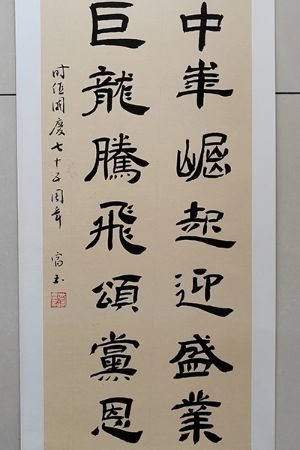 中華崛起迎盛業
巨龍騰飛頌黨恩
时值国慶七十五周年 富玉